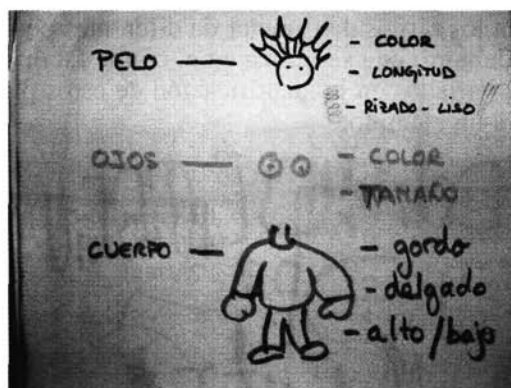 PELO — - COLOR
- LONGITUD
- RIZADO - LISO
OJOS — - COLOR
- TAMAÑO
CUERPO — - gordo
- delgado
- alto/bajo